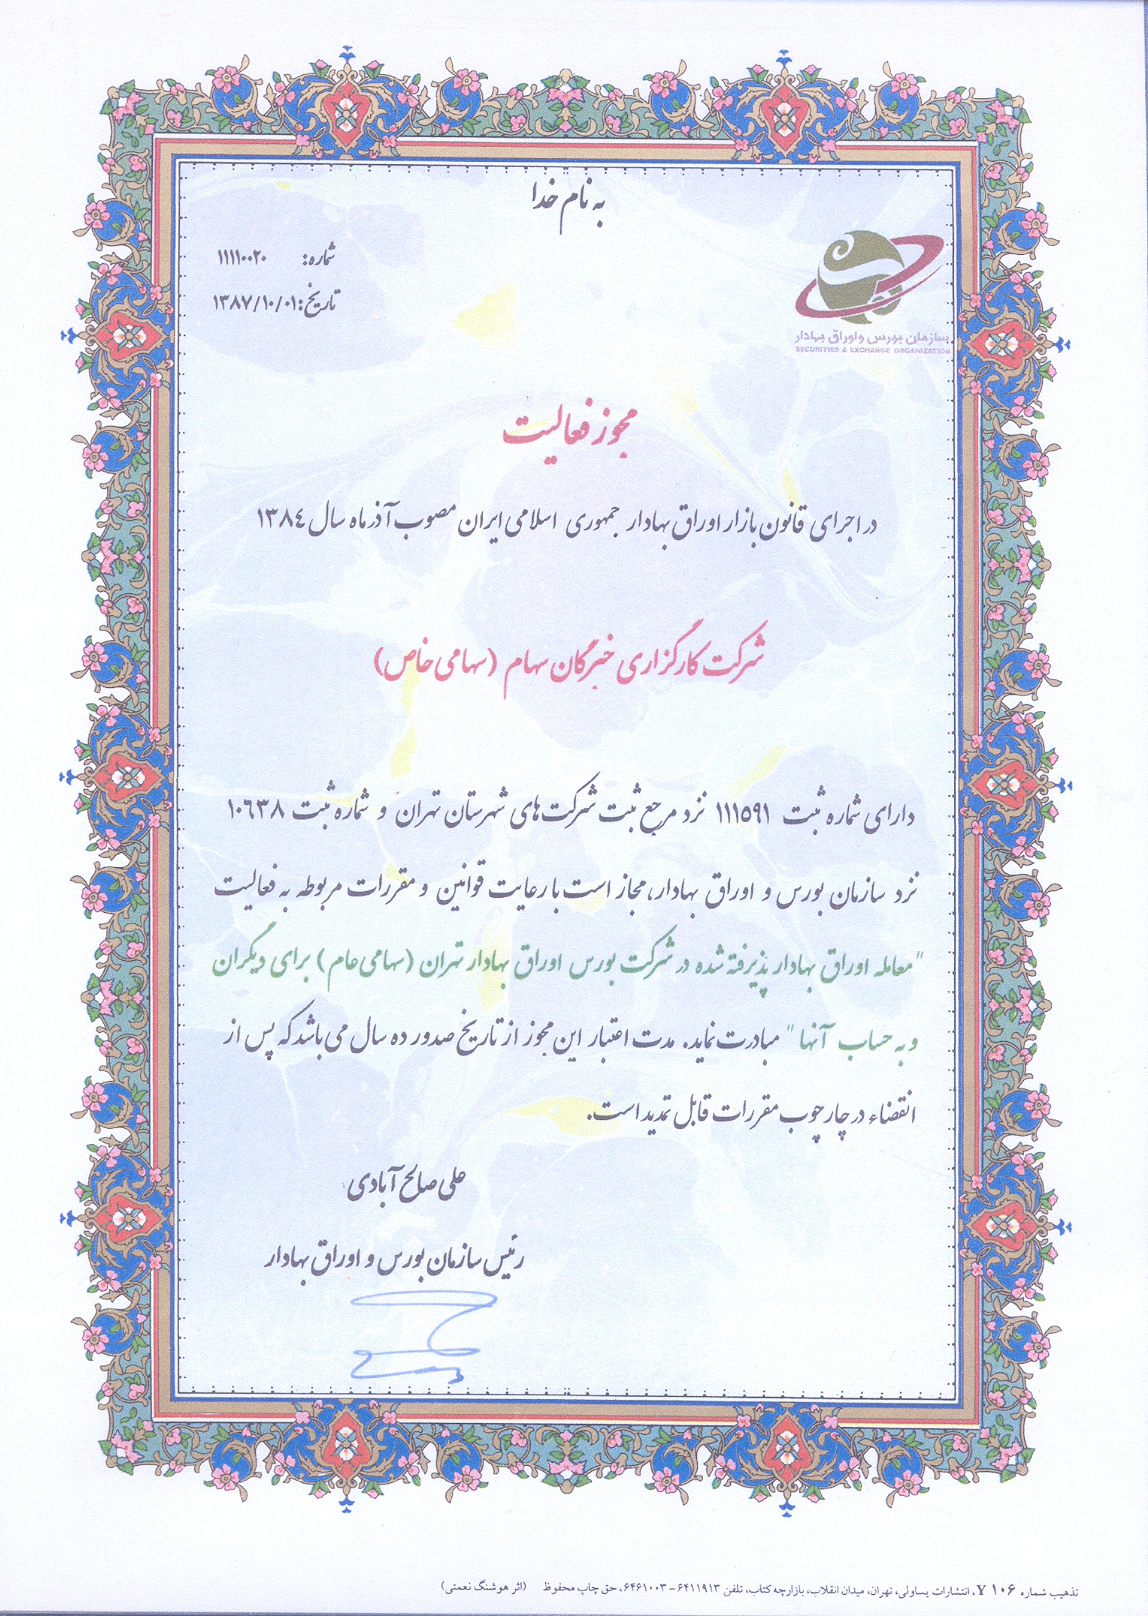 به نام خدا
شماره: ۱۱۱۱۰۰۲۰
تاریخ: ۱۳۸۷/۱۰/۰۱
سازمان بورس و اوراق بهادار
SECURITIES & EXCHANGE ORGANIZATION
مجوز فعالیت
در اجرای قانون بازار اوراق بهادار جمهوری اسلامی ایران مصوب آذر ماه سال ۱۳۸۴
شرکت کارگزاری خبرگان سهام (سهامی خاص)
دارای شماره ثبت ۱۱۱۵۹۱ نزد مرجع ثبت شرکت‌های شهرستان تهران و شماره ثبت ۱۰۶۳۸
نزد سازمان بورس و اوراق بهادار، مجاز است با رعایت قوانین و مقررات مربوطه به فعالیت
"معامله اوراق بهادار پذیرفته شده در شرکت بورس اوراق بهادار تهران (سهامی عام) برای دیگران
و به حساب آنها" مبادرت نماید. مدت اعتبار این مجوز از تاریخ صدور ده سال می باشد که پس از
انقضاء در چارچوب مقررات قابل تمدید است.
علی صالح آبادی
رئیس سازمان بورس و اوراق بهادار
تذهیب شماره ۱۰۶ Y، انتشارات یساولی، تهران، میدان انقلاب، بازارچه کتاب، تلفن ۶۴۱۱۹۱۳ - ۶۴۶۱۰۰۳، حق چاپ محفوظ (اثر هوشنگ نعمتی)